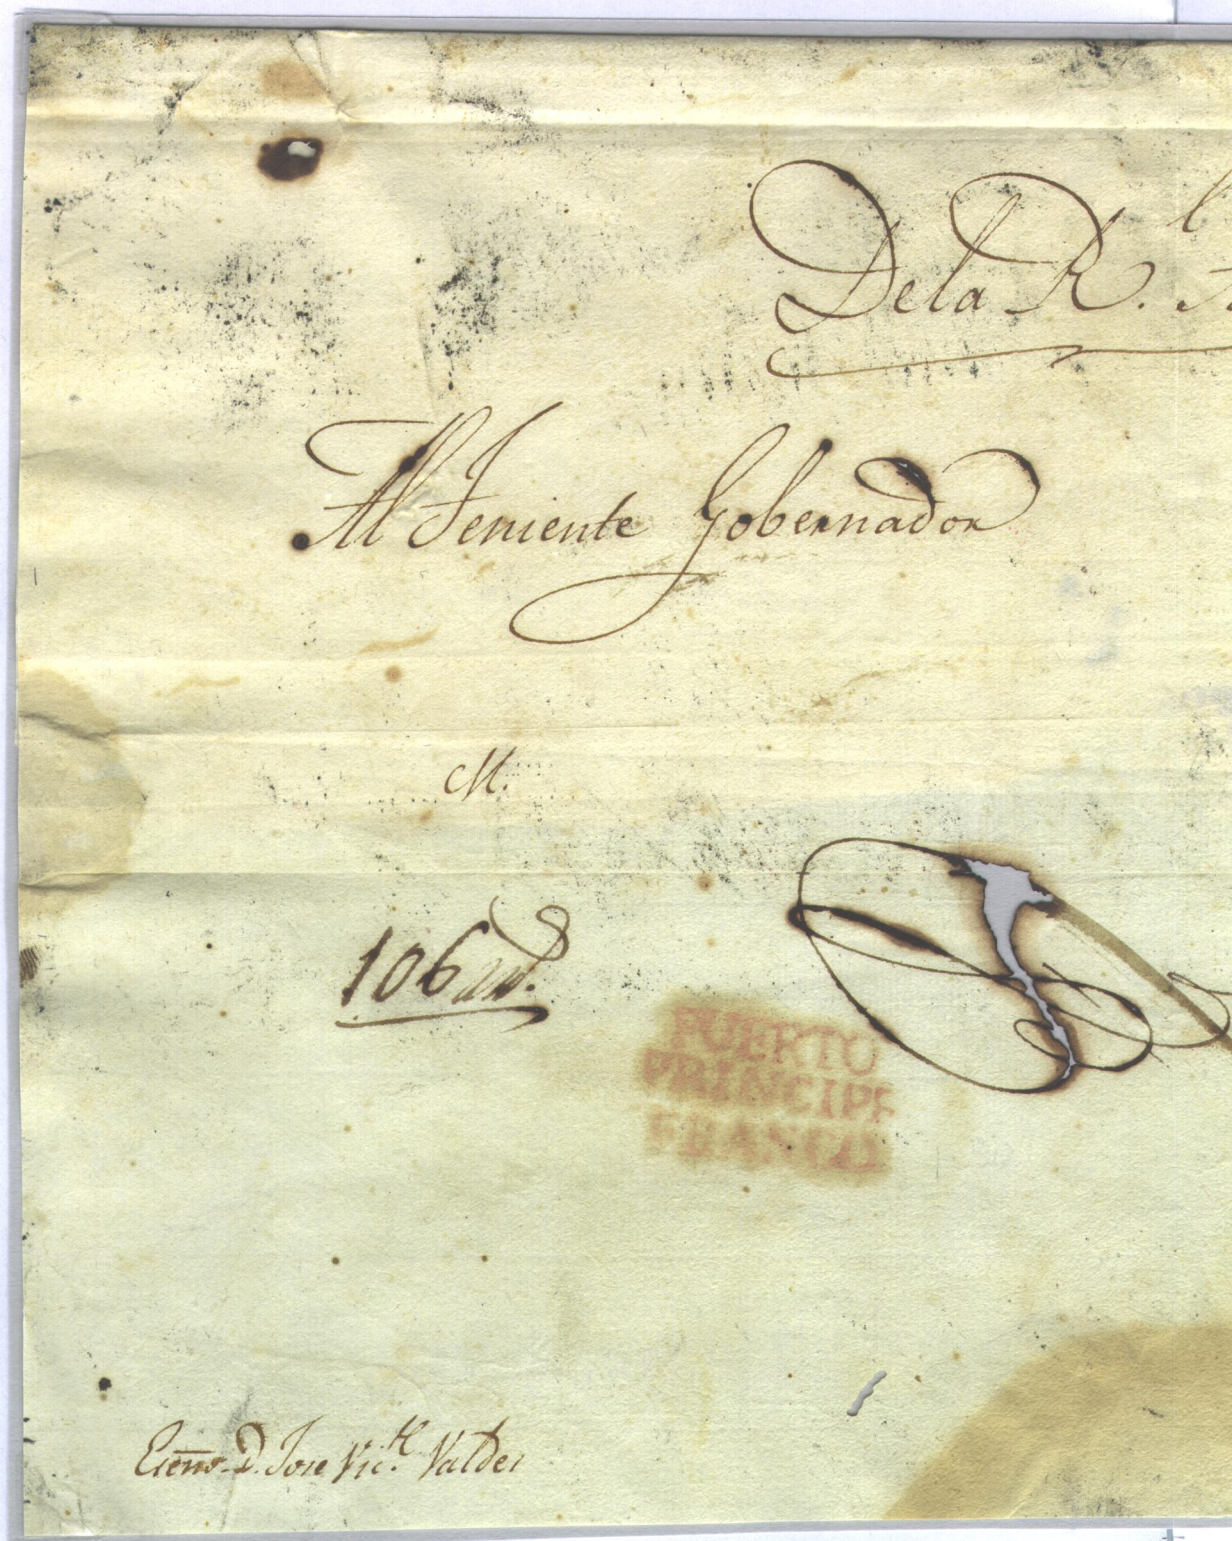 De la R.l
Al Teniente Gobernador
M.
106
PUERTO
PRINCIPE
FRANCO
D. Jose Vic.te Valdes